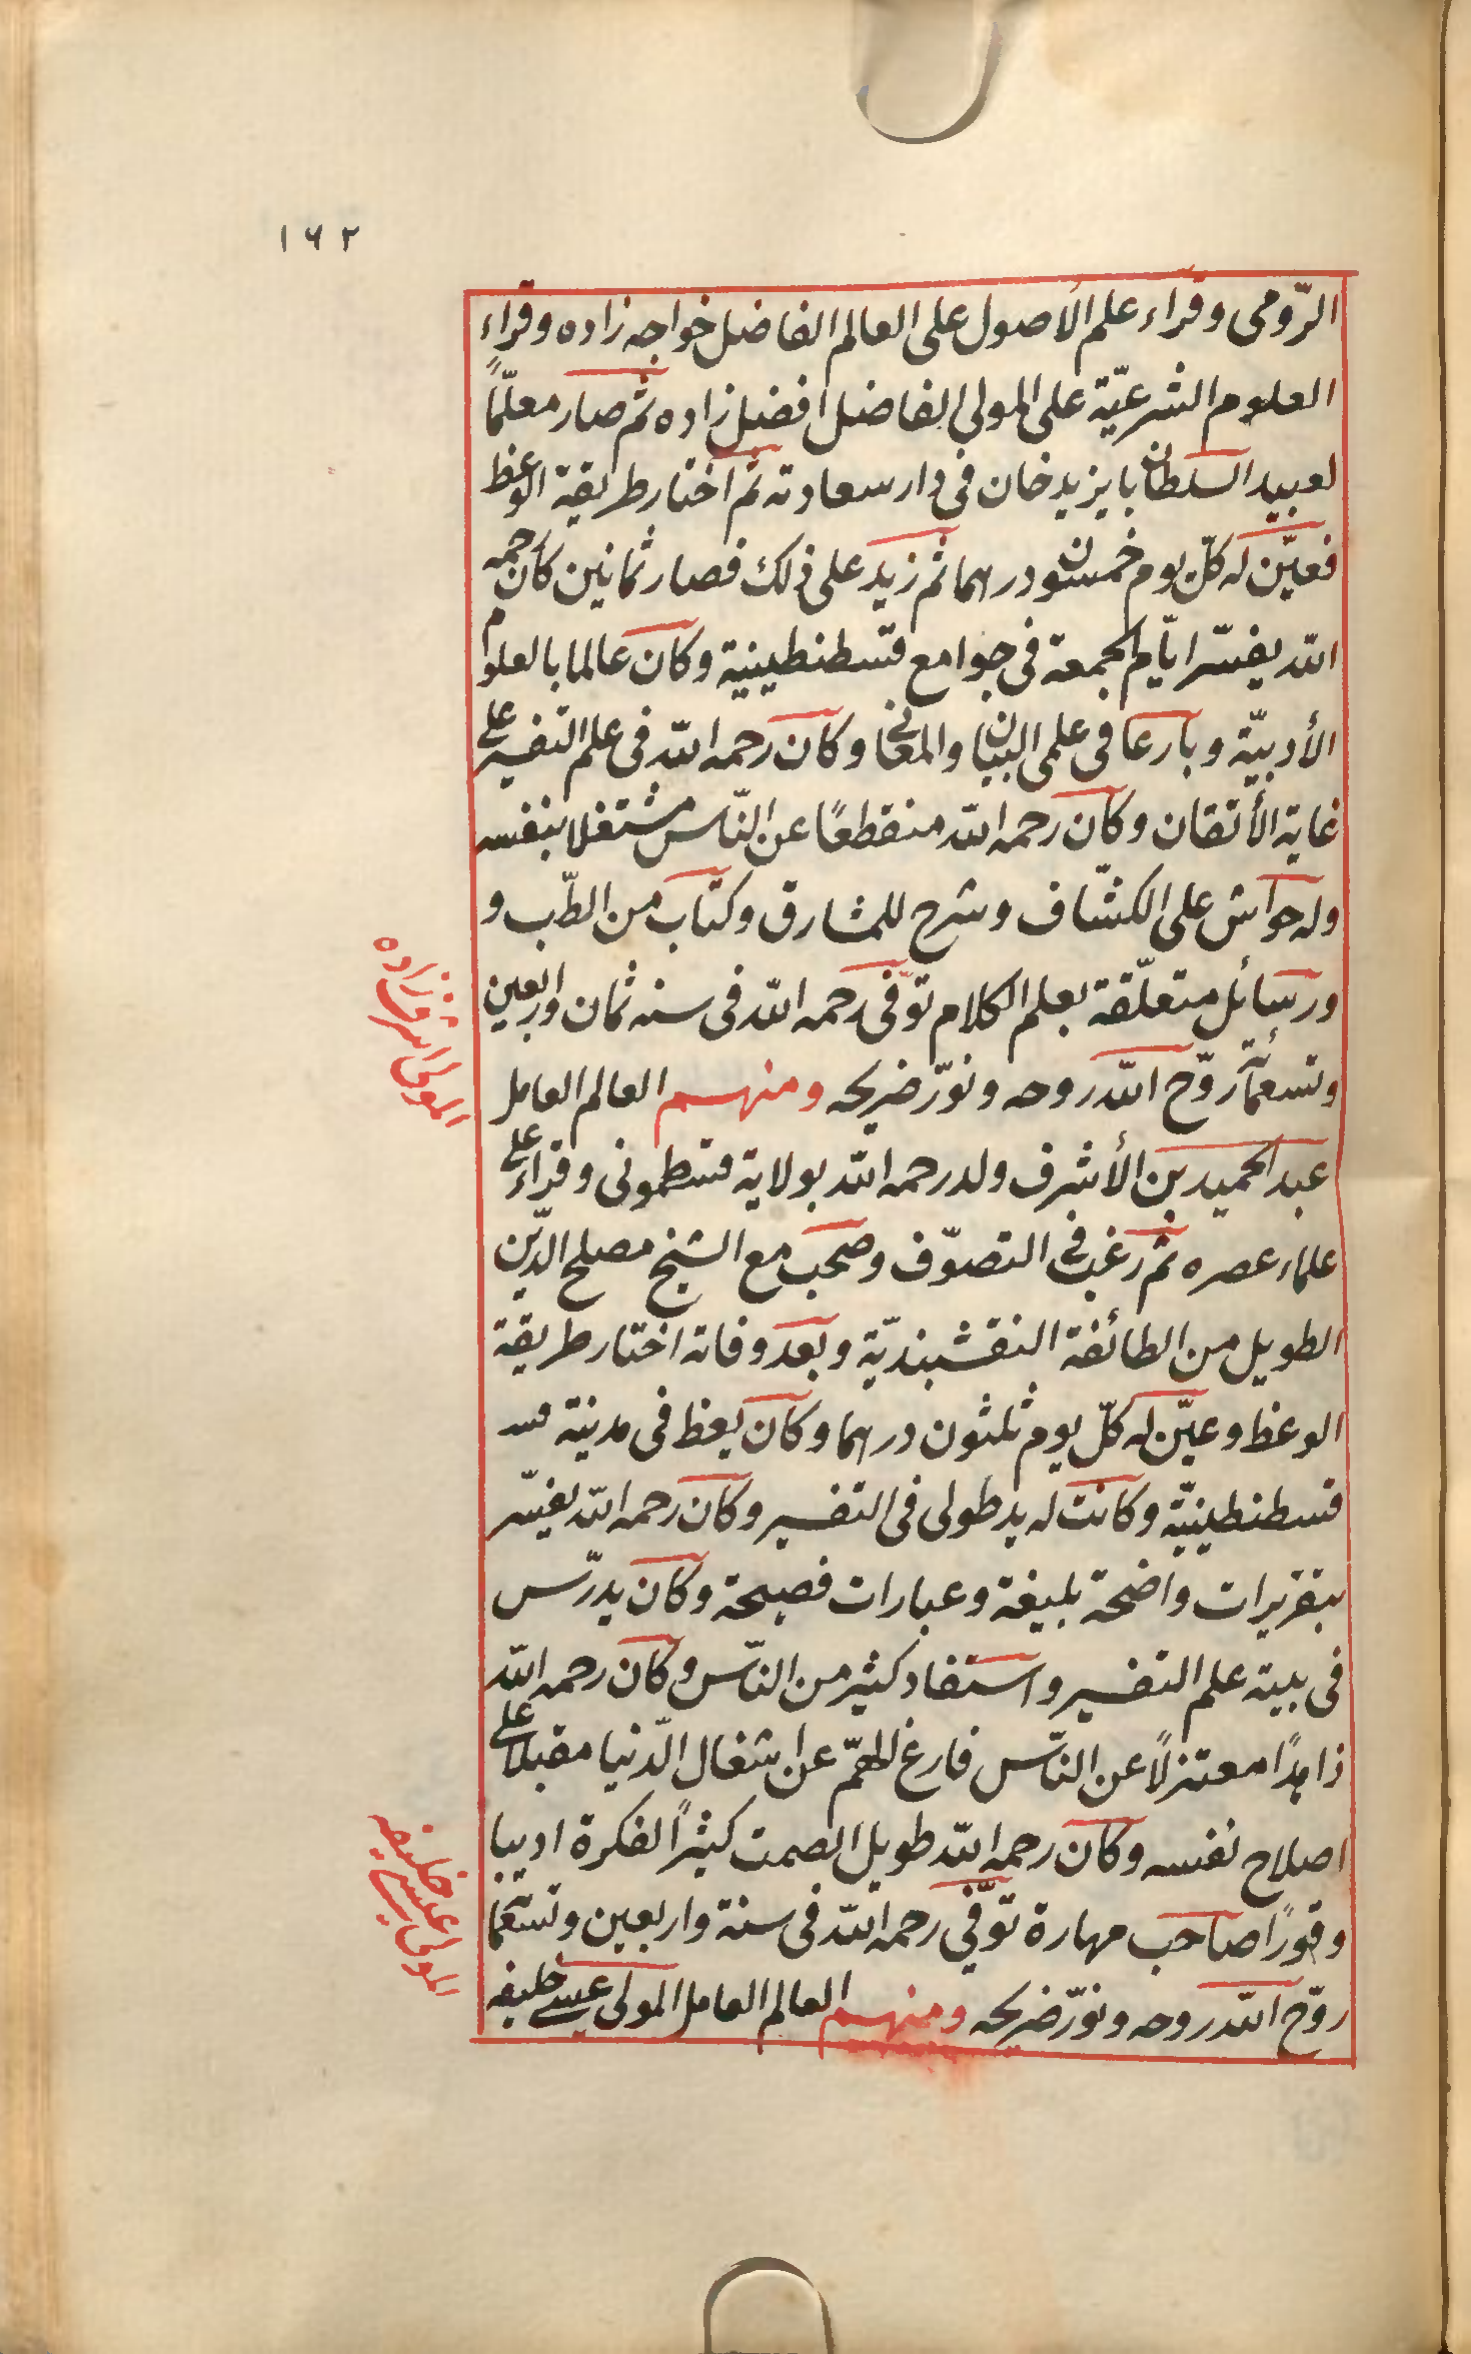 ١٦٢
الرّومى وقراء علم الأصول على العالم الفاضل خواجه زاده وقراء
العلوم الشرعيّة على المولى الفاضل افضل زاده ثم صار معلّماً
لعبيد السلطان بايزيد خان فى دار سعادته ثم اختار طريقة الوعظ
فعيّن له كلّ يوم خمسون درهما ثم زيد على ذلك فصار ثمانين كان رحمه
الله يفسّر ايّام الجمعة فى جوامع قسطنطينية وكان عالما بالعلوم
الأدبيّة وبارعا فى علمى البيان والمعانى وكان رحمه الله فى علم التفسير على
غاية الأتقان وكان رحمه الله منقطعًا عن النّاس مشتغلا بنفسه
وله حواش على الكشّاف وشرح للمشارق وكتاب من الطّب و
ورسائل متعلّقة بعلم الكلام توّفى رحمه الله فى سنه ثمان واربعين
وتسعمائة روّح الله روحه ونوّر ضريحه ومنهم العالم العامل
عبد الحميد بن الأشرف ولد رحمه الله بولاية قسطمونى وقراء على
علماء عصره ثم رغب فى التصوّف وصحب مع الشيخ مصلح الدّين
الطويل من الطائفة النقشبنديّة وبعد وفاته اختار طريقة
الوعظ وعيّن له كلّ يوم ثلثون درهما وكان يعظ فى مدينة قسد
قسطنطينيّة وكانت له يد طولى فى التفسير وكان رحمه الله يفسّر
بتقريرات واضحة بليغة وعبارات فصيحة وكان يدرّس
فى بيته علم التفسير واستفاد كثير من النّاس وكان رحمه الله
زاهدًا معتزلاً عن النّاس فارغ الهمّ عن اشغال الدّنيا مقبلا على
اصلاح نفسه وكان رحمه الله طويل الصمت كثيرًا لفكرة اديبا
وقورًا صاحب مهارة توّفّى رحمه الله فى سنة واربعين وتسعما
روّح الله روحه ونوّر ضريحه ومنهم العالم العامل المولى عيسى خليفه
المولى اشرف زاده
المولى عيسى خليفه